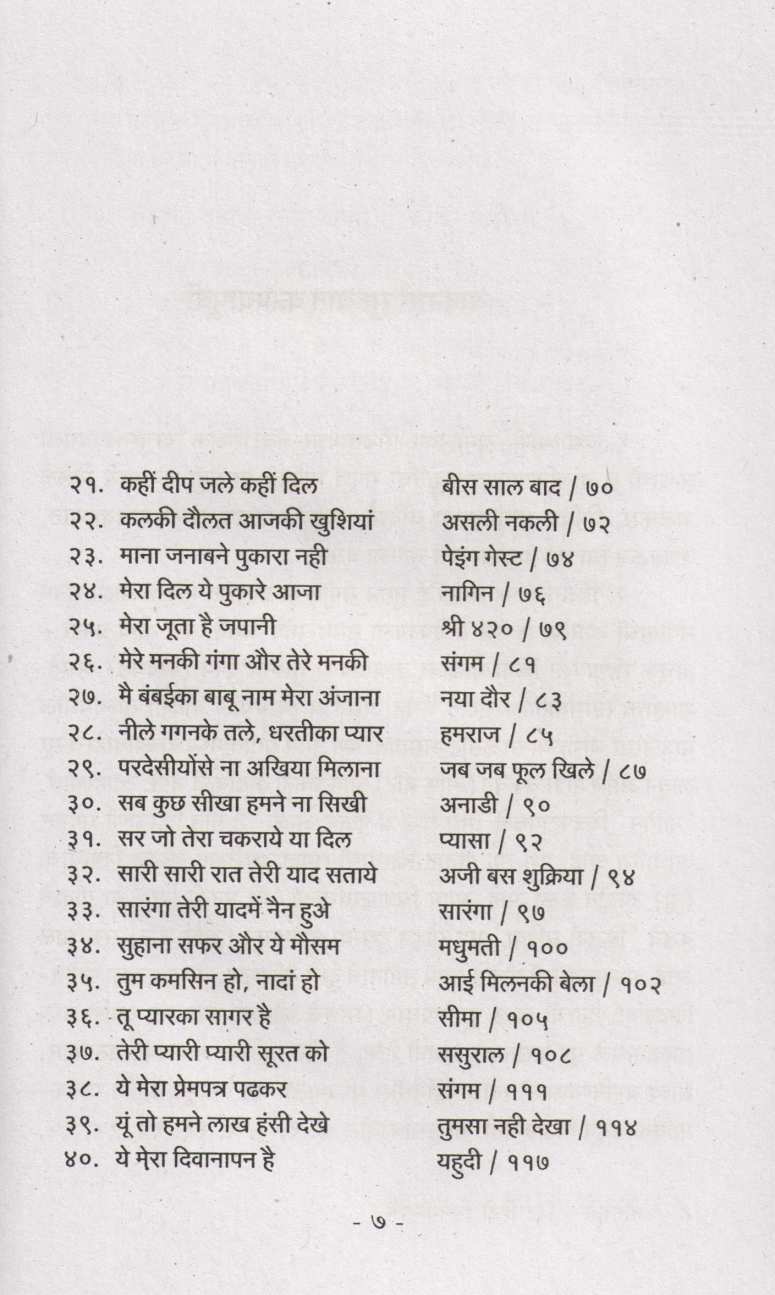 २१. कहीं दीप जले कहीं दिल बीस साल बाद / ७०
२२. कलकी दौलत आजकी खुशियां असली नकली / ७२
२३. माना जनाबने पुकारा नही पेइंग गेस्ट / ७४
२४. मेरा दिल ये पुकारे आजा नागिन / ७६
२५. मेरा जूता है जपानी श्री ४२० / ७९
२६. मेरे मनकी गंगा और तेरे मनकी संगम / ८१
२७. मै बंबईका बाबू नाम मेरा अंजाना नया दौर / ८३
२८. नीले गगनके तले, धरतीका प्यार हमराज / ८५
२९. परदेसीयोंसे ना अखिया मिलाना जब जब फूल खिले / ८७
३०. सब कुछ सीखा हमने ना सिखी अनाडी / ९०
३१. सर जो तेरा चकराये या दिल प्यासा / ९२
३२. सारी सारी रात तेरी याद सताये अजी बस शुक्रिया / ९४
३३. सारंगा तेरी यादमें नैन हुअे सारंगा / ९७
३४. सुहाना सफर और ये मौसम मधुमती / १००
३५. तुम कमसिन हो, नादां हो आई मिलनकी बेला / १०२
३६. तू प्यारका सागर है सीमा / १०५
३७. तेरी प्यारी प्यारी सूरत को ससुराल / १०८
३८. ये मेरा प्रेमपत्र पढकर संगम / १११
३९. यूं तो हमने लाख हंसी देखे तुमसा नही देखा / ११४
४०. ये मेरा दिवानापन है यहुदी / ११७
- ७ -